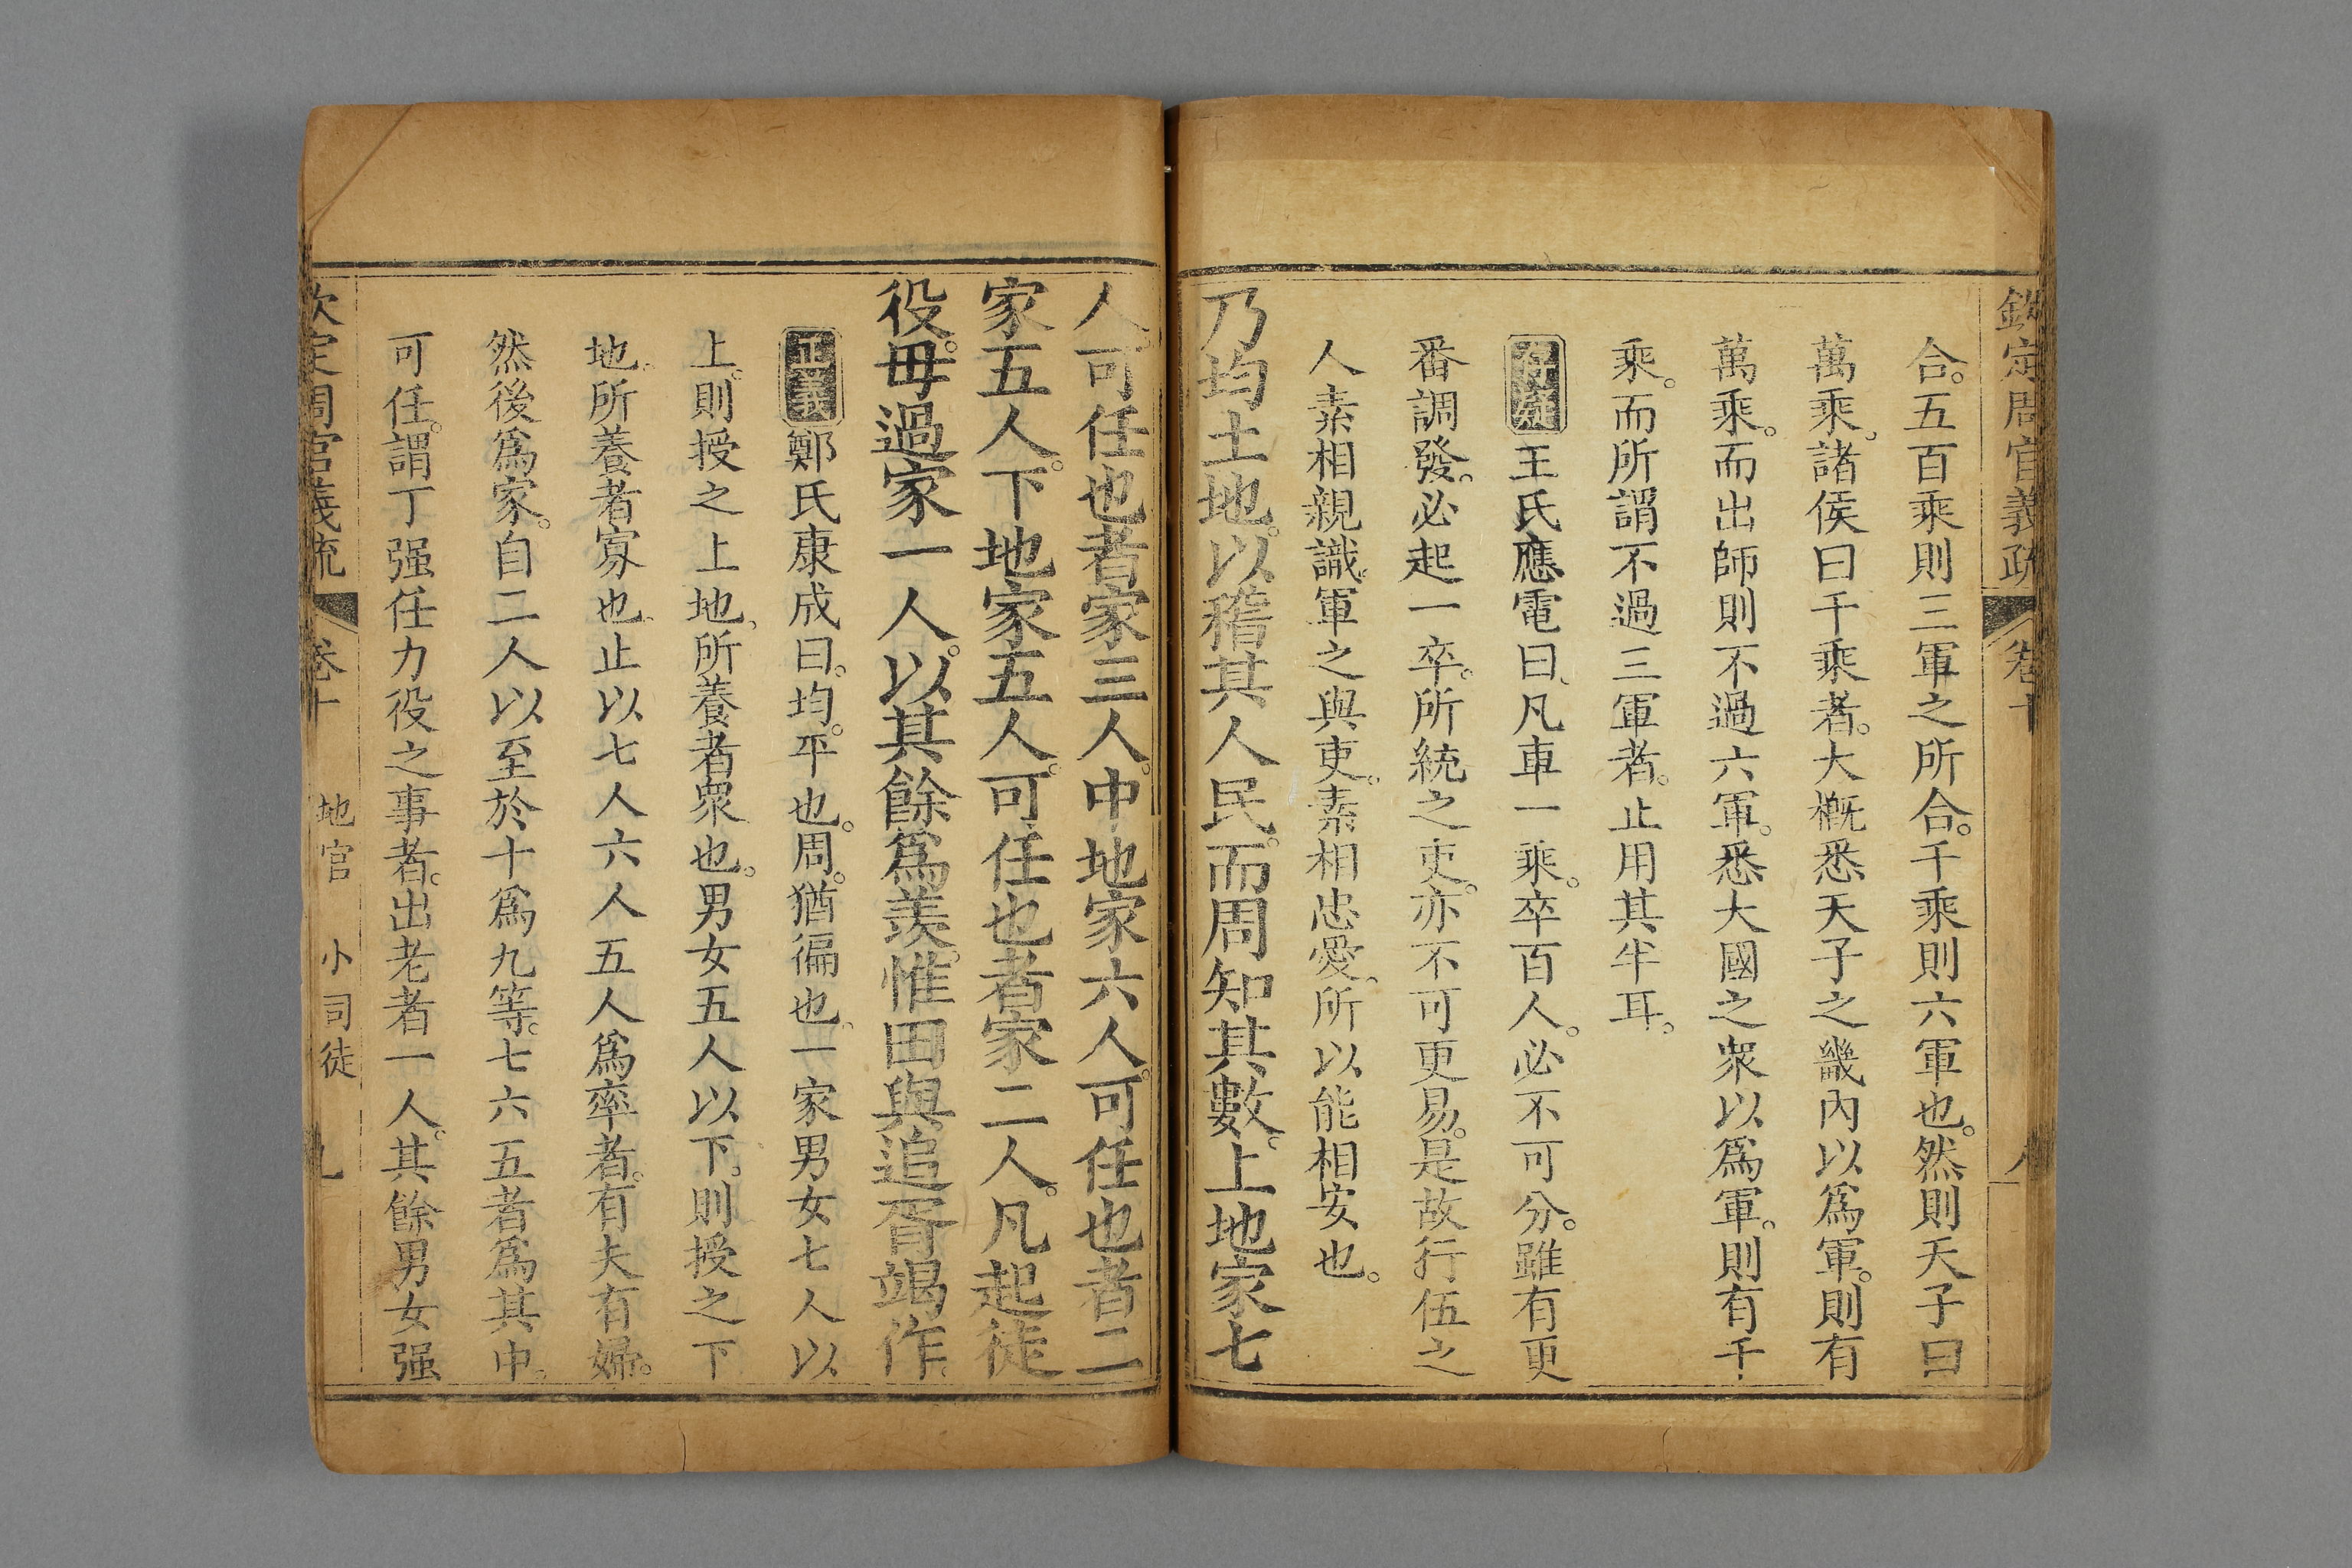 欽定周官義疏 卷十 八
合。五百乘則三軍之所合。千乘則六軍也。然則天子曰
萬乘。諸侯曰千乘者。大概悉天子之畿內以爲軍。則有
萬乘。而出師則不過六軍。悉大國之衆以爲軍。則有千
乘。而所謂不過三軍者。止用其半耳。
存疑 王氏應電曰。凡車一乘。卒百人。必不可分。雖有更
番調發。必起一卒。所統之吏。亦不可更易。是故行伍之
人素相親識。軍之與吏。素相忠愛。所以能相安也。
乃均土地。以稽其人民。而周知其數。上地家七
人。可任也者家三人。中地家六人。可任也者二
家五人。下地家五人。可任也者家二人。凡起徒
役。毋過家一人。以其餘爲羨。惟田與追胥竭作。
正義 鄭氏康成曰。均。平也。周。猶徧也。一家男女七人以
上。則授之上地。所養者衆也。男女五人以下。則授之下
地。所養者寡也。止以七人六人五人爲率者。有夫有婦。
然後爲家。自二人以至於十爲九等。七六五者爲其中。
可任。謂丁强任力役之事者。出老者一人。其餘男女强
欽定周官義疏 卷十 地官 小司徒 九